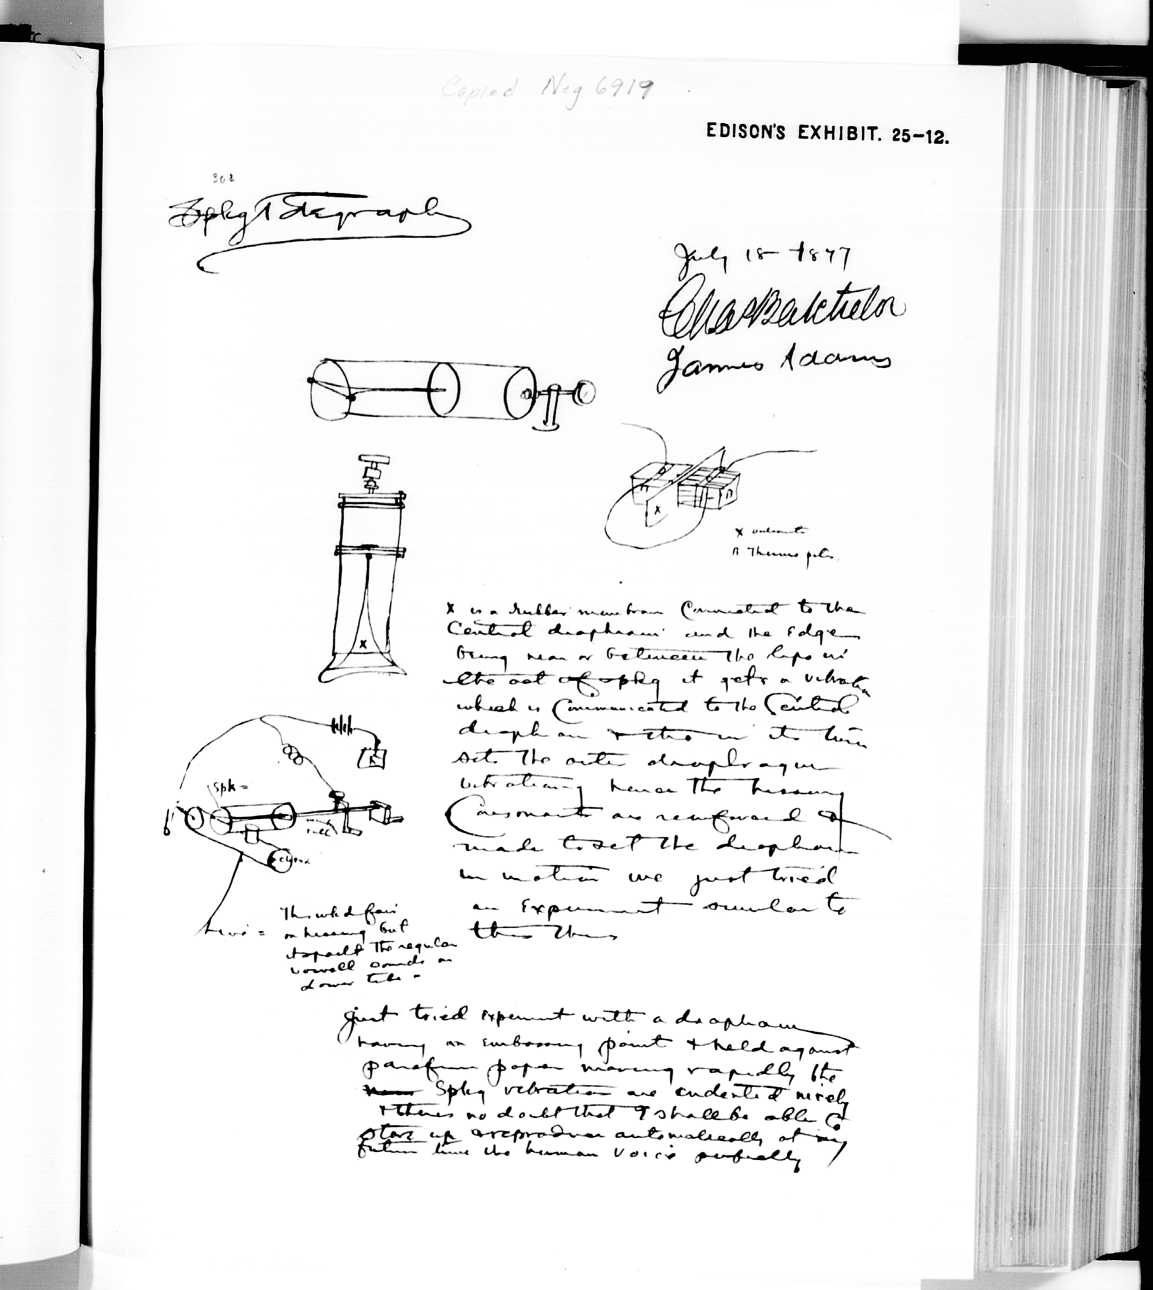 Copied Neg 6919
EDISON'S EXHIBIT. 25-12.
Spkg Telegraph
July 18 1877
Chas Batchelor
James Adams
X
n
n
X vibrates
n Thermo pile.
X is a rubber membrane Connected to the
Central diaphram and the Edge
being near or between the lips in
the act of spkg it gets a vibration
which is Communicated to the Central
diaphram & this in its turn
sets the outer diaphragm
vibrating hence the hissing
Consonants are reinforced &
made to set the diaphram
in motion we just tried
an Experiment similar to
this
X
Spk =
This whd fair
on hissing but
it spoilt the regular
vowell sounds in
lower tube -
Just tried experiment with a diaphram
having an Embossing point & held against
parafin paper moving rapidly the
Spkg vibrations are indented nicely
& theres no doubt that I shall be able to
store up & reproduce automatically at any
future time the human voice perfectly